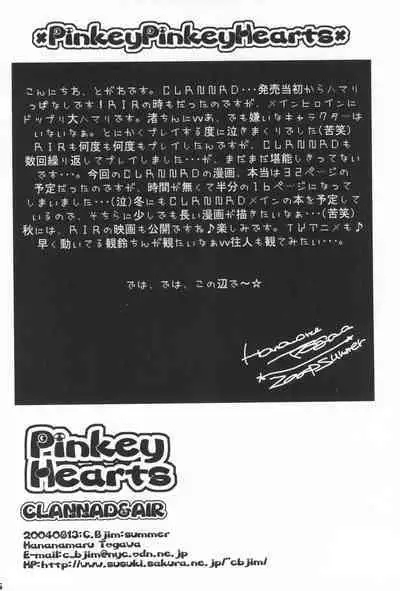 *PinkeyPinkeyHearts*
こんにちわ、とがわです。CLANNAD･･･発売当初からハマリ
っぱなしです！AIRの時もだったのですが、メインヒロインに
ドップリ大ハマリです。渚ちんにｗあ、でも嫌いなキャラクターは
いないなぁ。とにかくプレイする度に泣きまくりでした(苦笑)
AIRも何度も何度もプレイしたんですが、CLANNADも
数回繰り返してプレイしました･･･が、まだまだ堪能しきってない
ですの･･･。今回のCLANNADの漫画、本当は32ページの
予定だったのですが、時間が無くて半分の16ページになって
しまいました･･･(泣)冬にもCLANNADメインの本を予定して
いるので、そちらに少しでも長い漫画が描きたいなぁ･･･(苦笑)
秋には、AIRの映画も公開ですね♪楽しみです。TVアニメも♪
早く動いてる観鈴ちんが観たいなぁｗ往人も観てみたい･･･。
では、では、この辺で～☆
Pinkey
Hearts
CLANNAD&AIR
20040813:C.Bjim:summer
Hananamaru Togawa
E-mail:c_bjim@nyc.odn.ne.jp
HP:http://www.susuki.sakura.ne.jp/~cbjim/